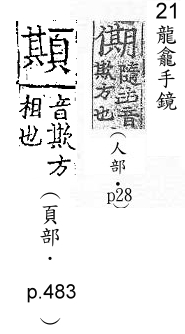 21
龍龕手鏡
隨函音
欺方也
（人部・p28）
䫏
音欺方
相也
（頁部・p.483）